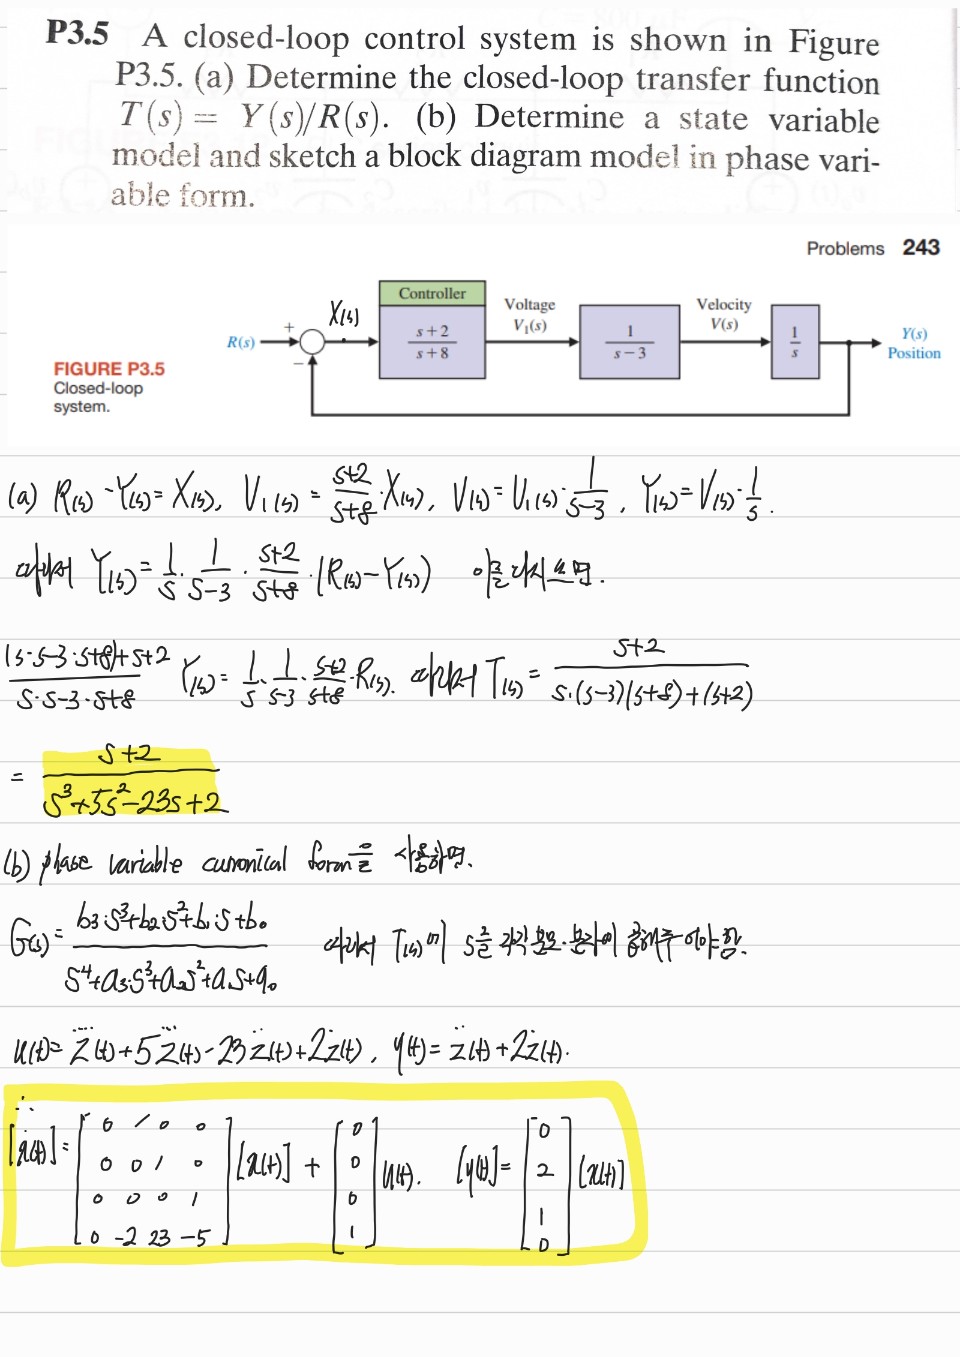 P3.5 A closed-loop control system is shown in Figure
P3.5. (a) Determine the closed-loop transfer function
T(s) = Y(s)/R(s). (b) Determine a state variable
model and sketch a block diagram model in phase vari-
able form.
Problems 243
Controller
X(s)
Voltage
V₁(s)
Velocity
V(s)
R(s)
+
−
s+2
s+8
1
s−3
1
s
Y(s)
Position
FIGURE P3.5
Closed-loop
system.
(a) R(s) - Y(s) = X(s), V₁(s) = (s+2)/(s+8) · X(s), V(s) = V₁(s) · 1/(s-3), Y(s) = V(s) · 1/s.
따라서 Y(s) = 1/s · 1/(s-3) · (s+2)/(s+8) · (R(s) - Y(s))
((s·s-3·s+8)+s+2)/(s·s-3·s+8) Y(s) = 1/s · 1/(s-3) · (s+2)/(s+8) · R(s). 따라서 T(s) = (s+2)/(s·(s-3)(s+8)+(s+2))
= (s+2)/(s³+5s²-23s+2)
(b) phase variable cunonical form을 사용하면.
G(s) = (b₃·s³+b₂·s²+b₁·s+b₀)/(s⁴+a₃·s³+a₂s²+a₁s+a₀) 따라서 T(s)에 s를 각각 분모·분자에 곱해주어야함.
u(t) = z⃜(t)+5z⃛(t)-23z̈(t)+2ż(t), y(t) = z̈(t)+2ż(t).
∴
[ẋ(t)] = [0 1 0 0
0 0 1 0
0 0 0 1
0 -2 23 -5] [x(t)] + [0
0
0
1] u(t). [y(t)] = [0
2
1
0] [x(t)]